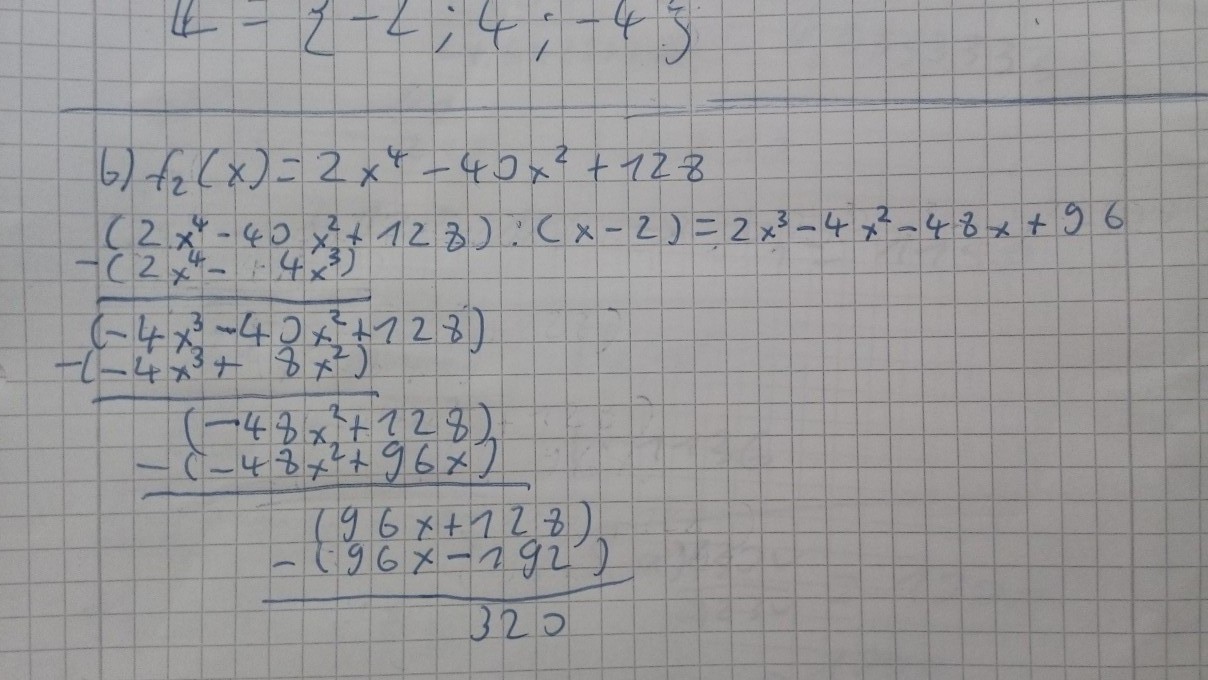 L = {-2; 4; -4}
b) f₂(x) = 2x⁴ - 40x² + 128
(2x⁴ - 40x² + 128) : (x - 2) = 2x³ - 4x² - 48x + 96
-(2x⁴ - 4x³)
(-4x³ - 40x² + 128)
-(-4x³ + 8x²)
(-48x² + 128)
-(-48x² + 96x)
(96x + 128)
-(96x - 192)
320